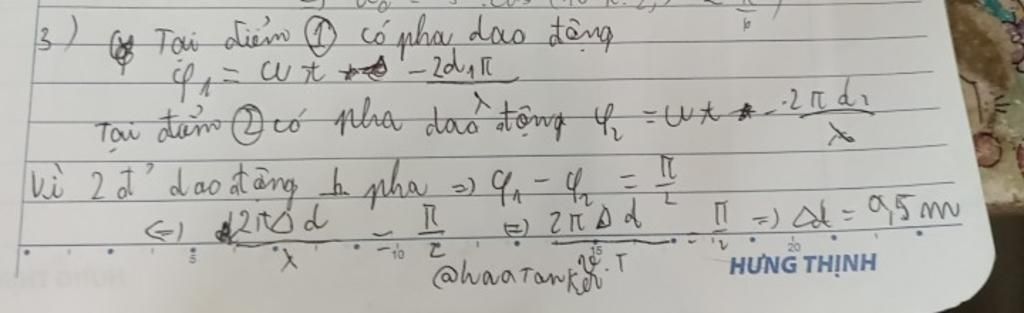 3) Tại điểm ① có pha dao động
φ₁ = ωt - 2d₁π/λ
Tại điểm ② có pha dao động φ₂ = ωt - 2πd₂/λ
Vì 2 đ' dao động pha => φ₁ - φ₂ = π/2
<=> 2πΔd/λ = π/2 <=> 2πΔd/v.T = π/2 => Δd = 0,5m
5 10 15 20
HƯNG THỊNH